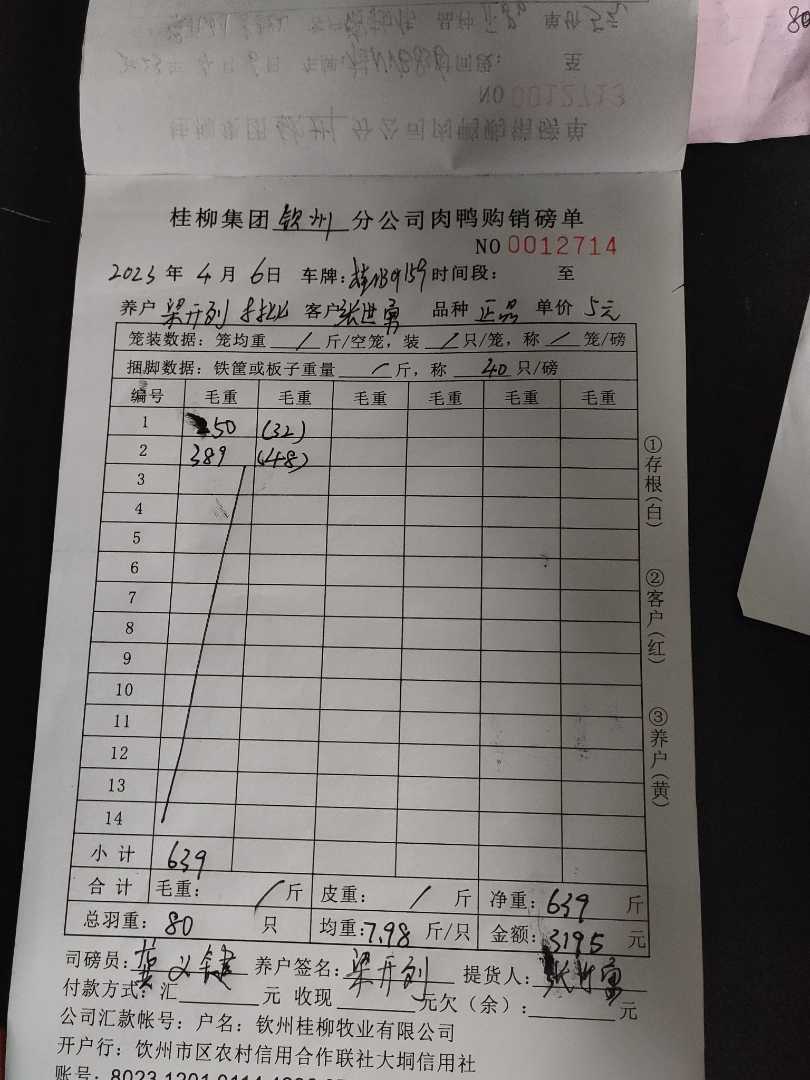 80
NO 0012713
桂柳集团钦州分公司肉鸭购销磅单
NO 0012714
2023年4月6日 车牌: 时间段: 至
养户 梁开列 客户张世勇 品种 正品 单价 5元
笼装数据:笼均重 / 斤/空笼,装 / 只/笼,称 / 笼/磅
捆脚数据:铁筐或板子重量 / 斤,称 40 只/磅
编号 毛重 毛重 毛重 毛重 毛重 毛重
1 250 (32)
2 389 (48)
3
4
5
6
7
8
9
10
11
12
13
14
小计 639
合计 毛重: / 斤 皮重: / 斤 净重: 639 斤
总羽重: 80 只 均重: 7.98 斤/只 金额: 3195 元
①存根(白) ②客户(红) ③养户(黄)
司磅员: 养户签名: 梁开列 提货人: 张世勇
付款方式:汇 元 收现 元欠(余): 元
公司汇款帐号:户名:钦州桂柳牧业有限公司
开户行:钦州市区农村信用合作联社大垌信用社
账号: 8023 1201 0114